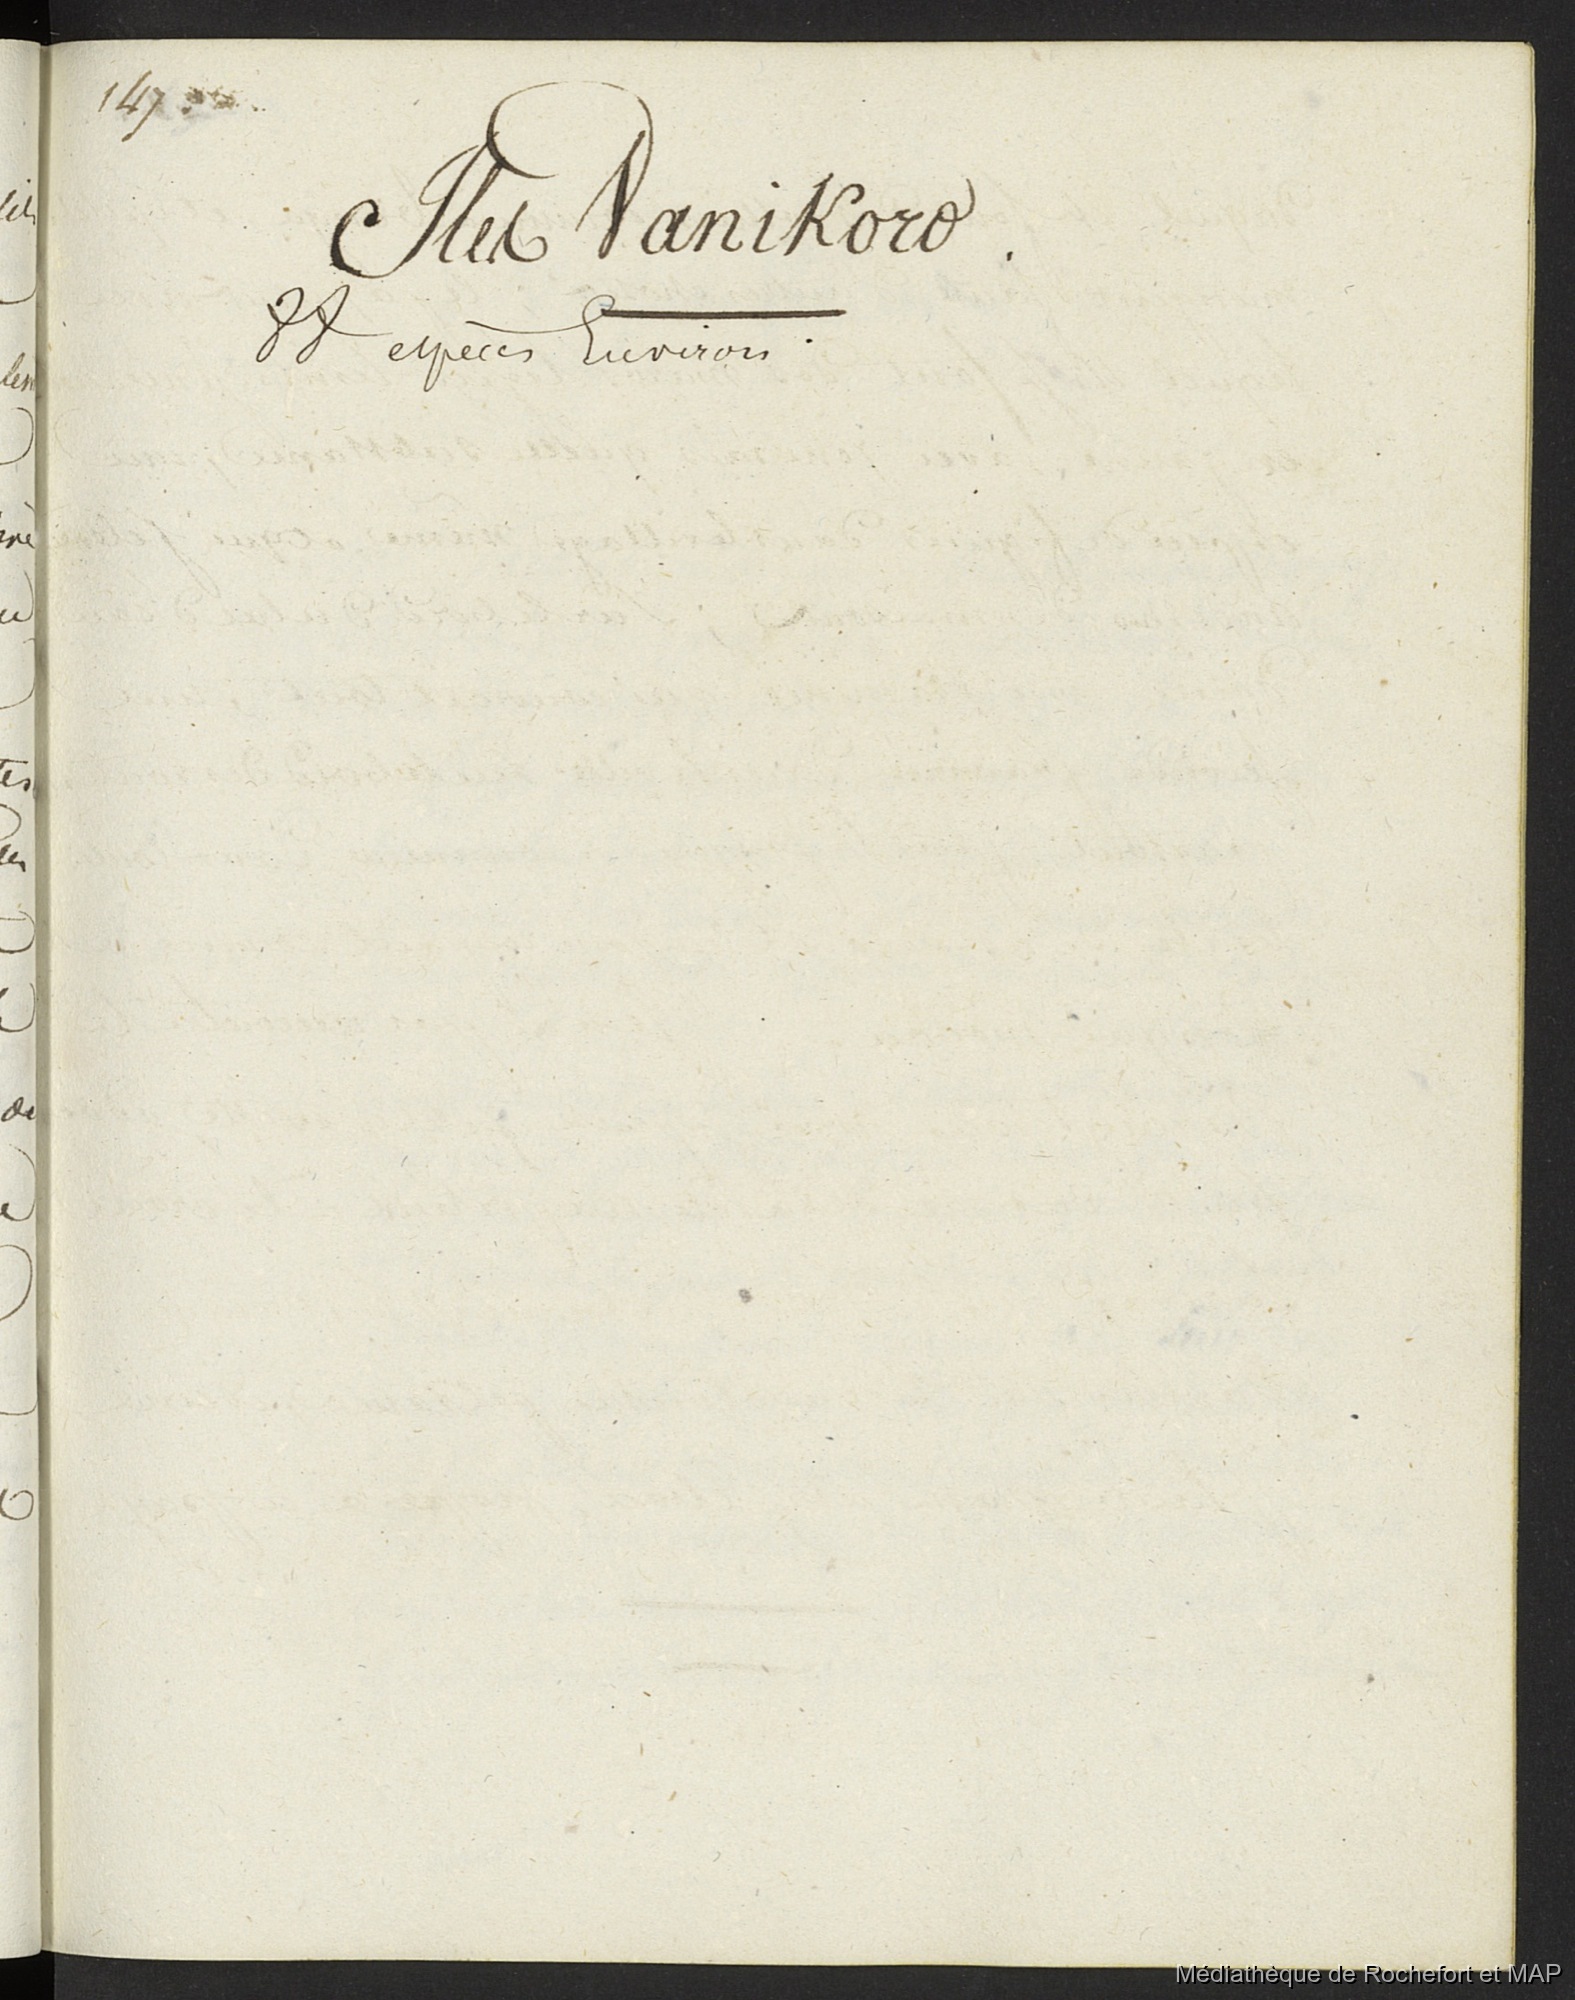 147
Iles Vanikoro.
espèces Environ.
Médiathèque de Rochefort et MAP